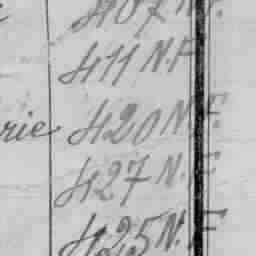 407 N.F.
411 N.F.
rie 420 N.F.
427 N.F.
425 N.F.